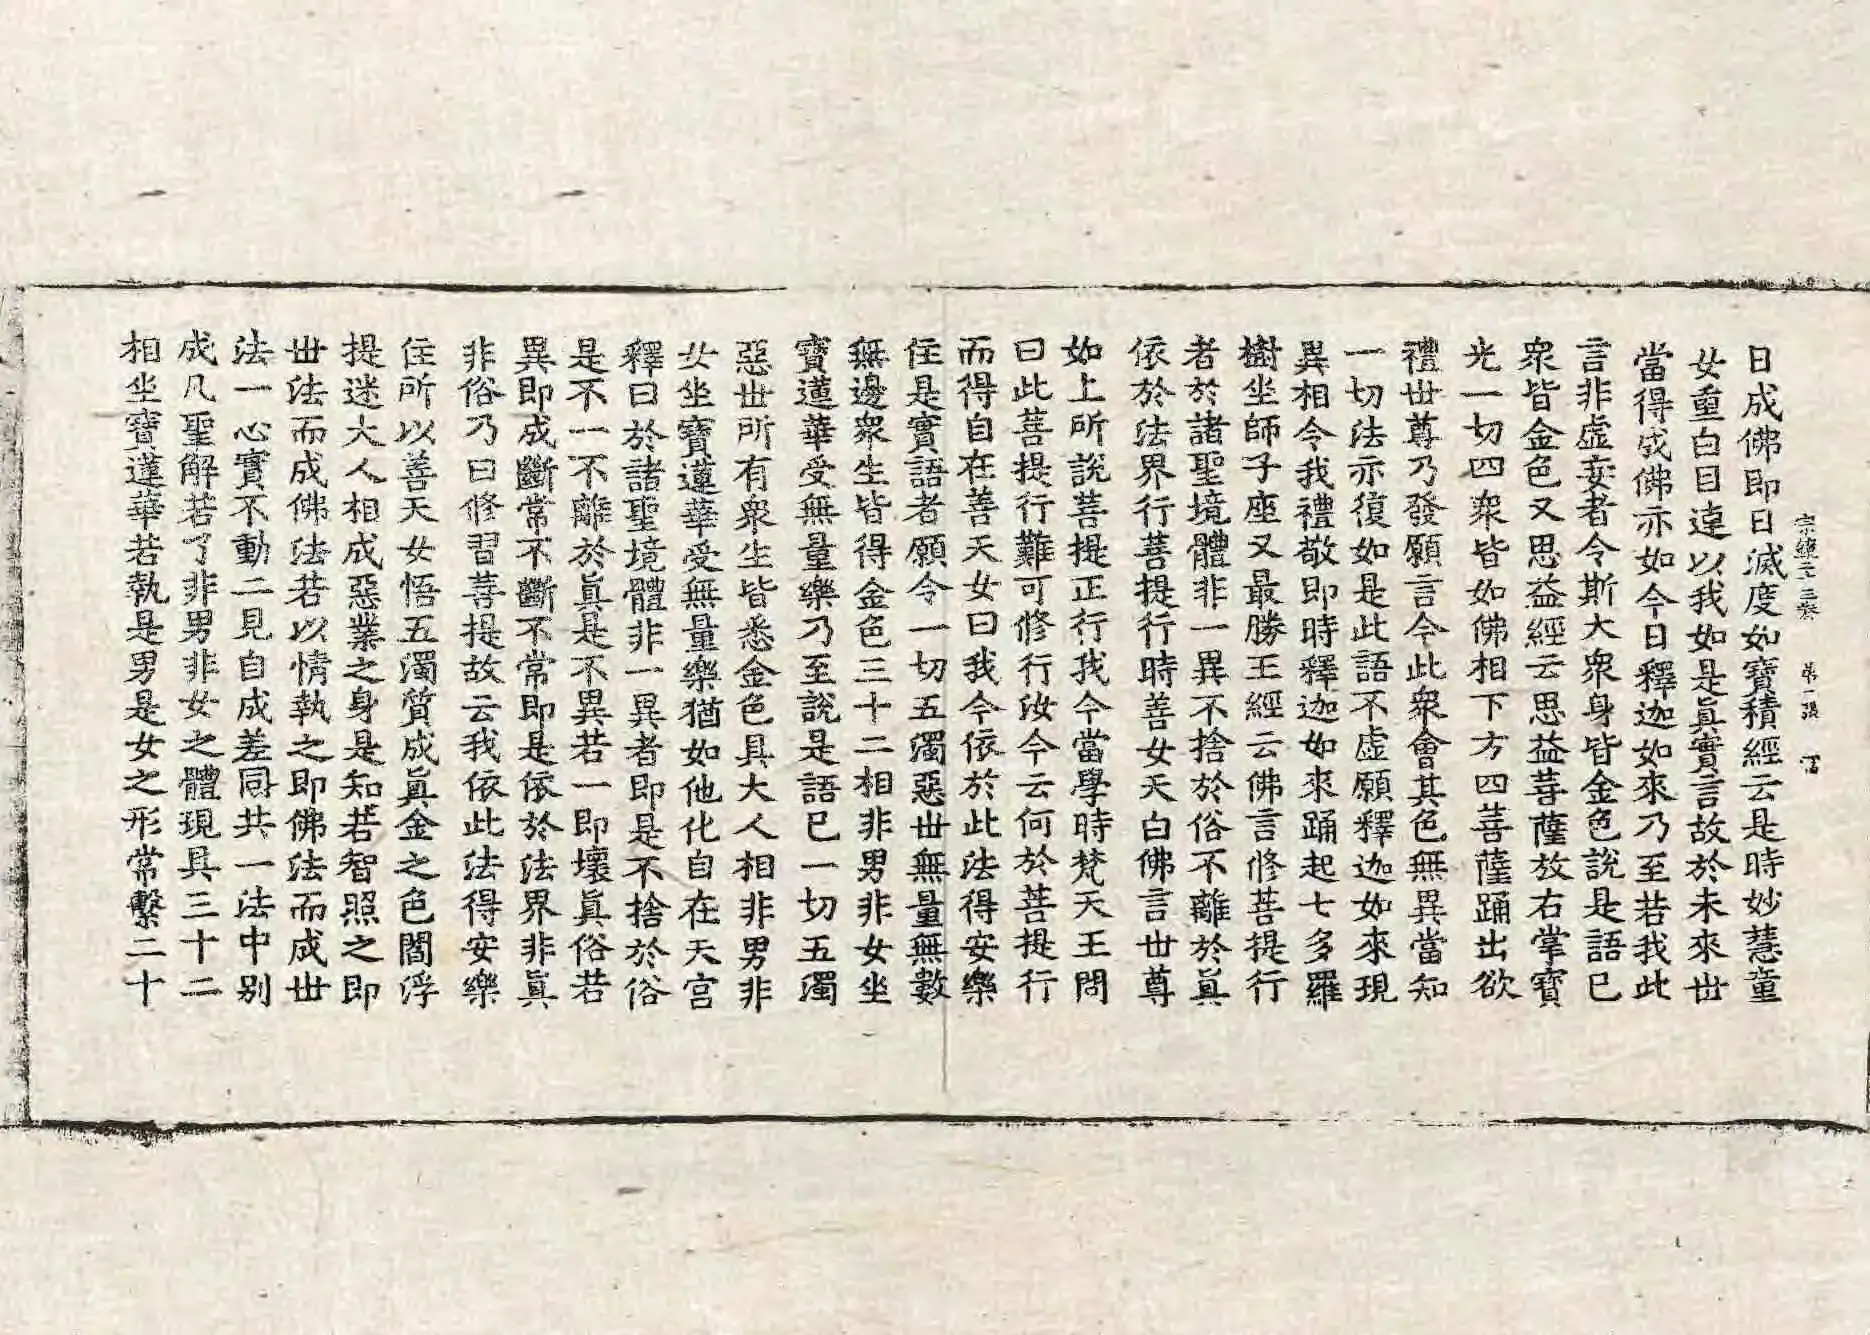 日成佛即日滅度如寶積經云是時妙慧童
女重白目連以我如是眞實言故於未來世
當得成佛亦如今日釋迦如來乃至若我此
言非虛妄者令斯大衆身皆金色說是語已
衆皆金色又思益經云思益菩薩放右掌寶
光一切四衆皆如佛相下方四菩薩踊出欲
禮世尊乃發願言今此衆會其色無異當知
一切法亦復如是此語不虛願釋迦如來現
異相令我禮敬即時釋迦如來踊起七多羅
樹坐師子座又最勝王經云佛言修菩提行
者於諸聖境體非一異不捨於俗不離於眞
依於法界行菩提行時善女天白佛言世尊
如上所說菩提正行我今當學時梵天王問
曰此菩提行難可修行汝今云何於菩提行
而得自在善天女曰我今依於此法得安樂
住是實語者願令一切五濁惡世無量無數
無邊衆生皆得金色三十二相非男非女坐
寶蓮華受無量樂乃至說是語已一切五濁
惡世所有衆生皆悉金色具大人相非男非
女坐寶蓮華受無量樂猶如他化自在天宮
釋曰於諸聖境體非一異者即是不捨於俗
是不一不離於眞是不異若一即壞眞俗若
異即成斷常不斷不常即是依於法界非眞
非俗乃曰修習菩提故云我依此法得安樂
住所以善天女悟五濁質成眞金之色閻浮
提迷大人相成惡業之身是知若智照之即
世法而成佛法若以情執之即佛法而成世
法一心實不動二見自成差同共一法中別
成凡聖解若了非男非女之體現具三十二
相坐寶蓮華若執是男是女之形常繫二十